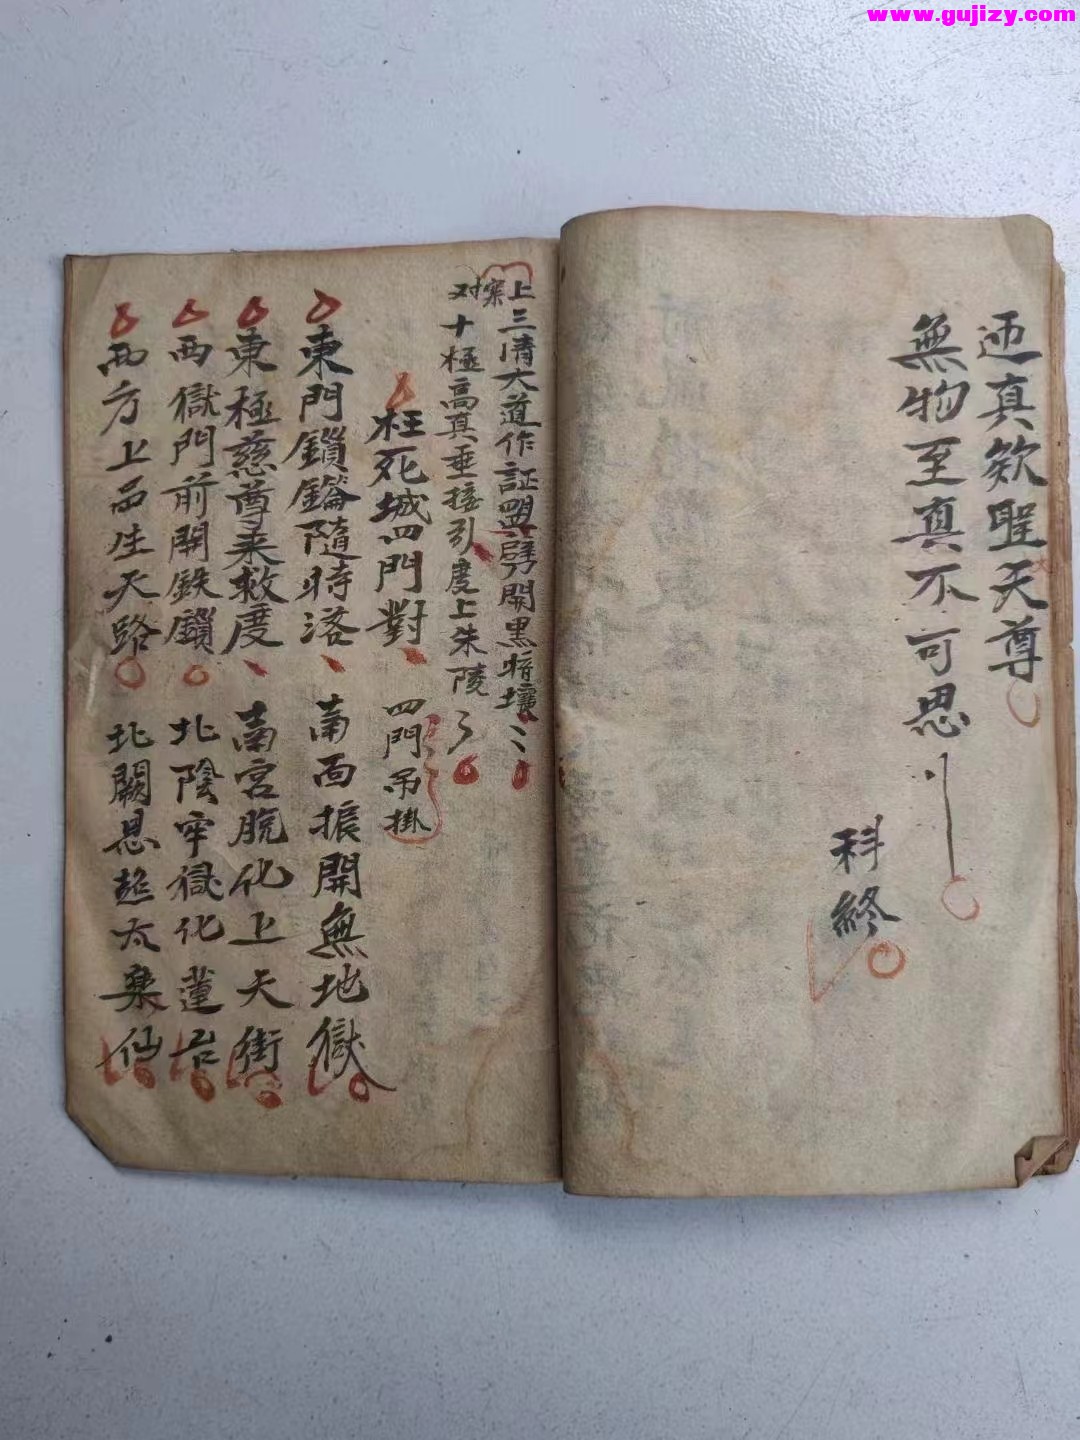 www.gujizy.com
迊真欸聖天尊
大
無物至真不可思
科終
上三清大道作証盟劈開黑暗壤
寀
对十極高真垂接引度上朱陵
枉死城四門對 四門吊掛
東門鎖鑰隨時落 南面振開無地獄
東極慈尊来救度 南宮脫化上天街
西獄門前開鉄鎖 北陰牢獄化蓮台
西方上品生天路 北闕恩超太乘仙